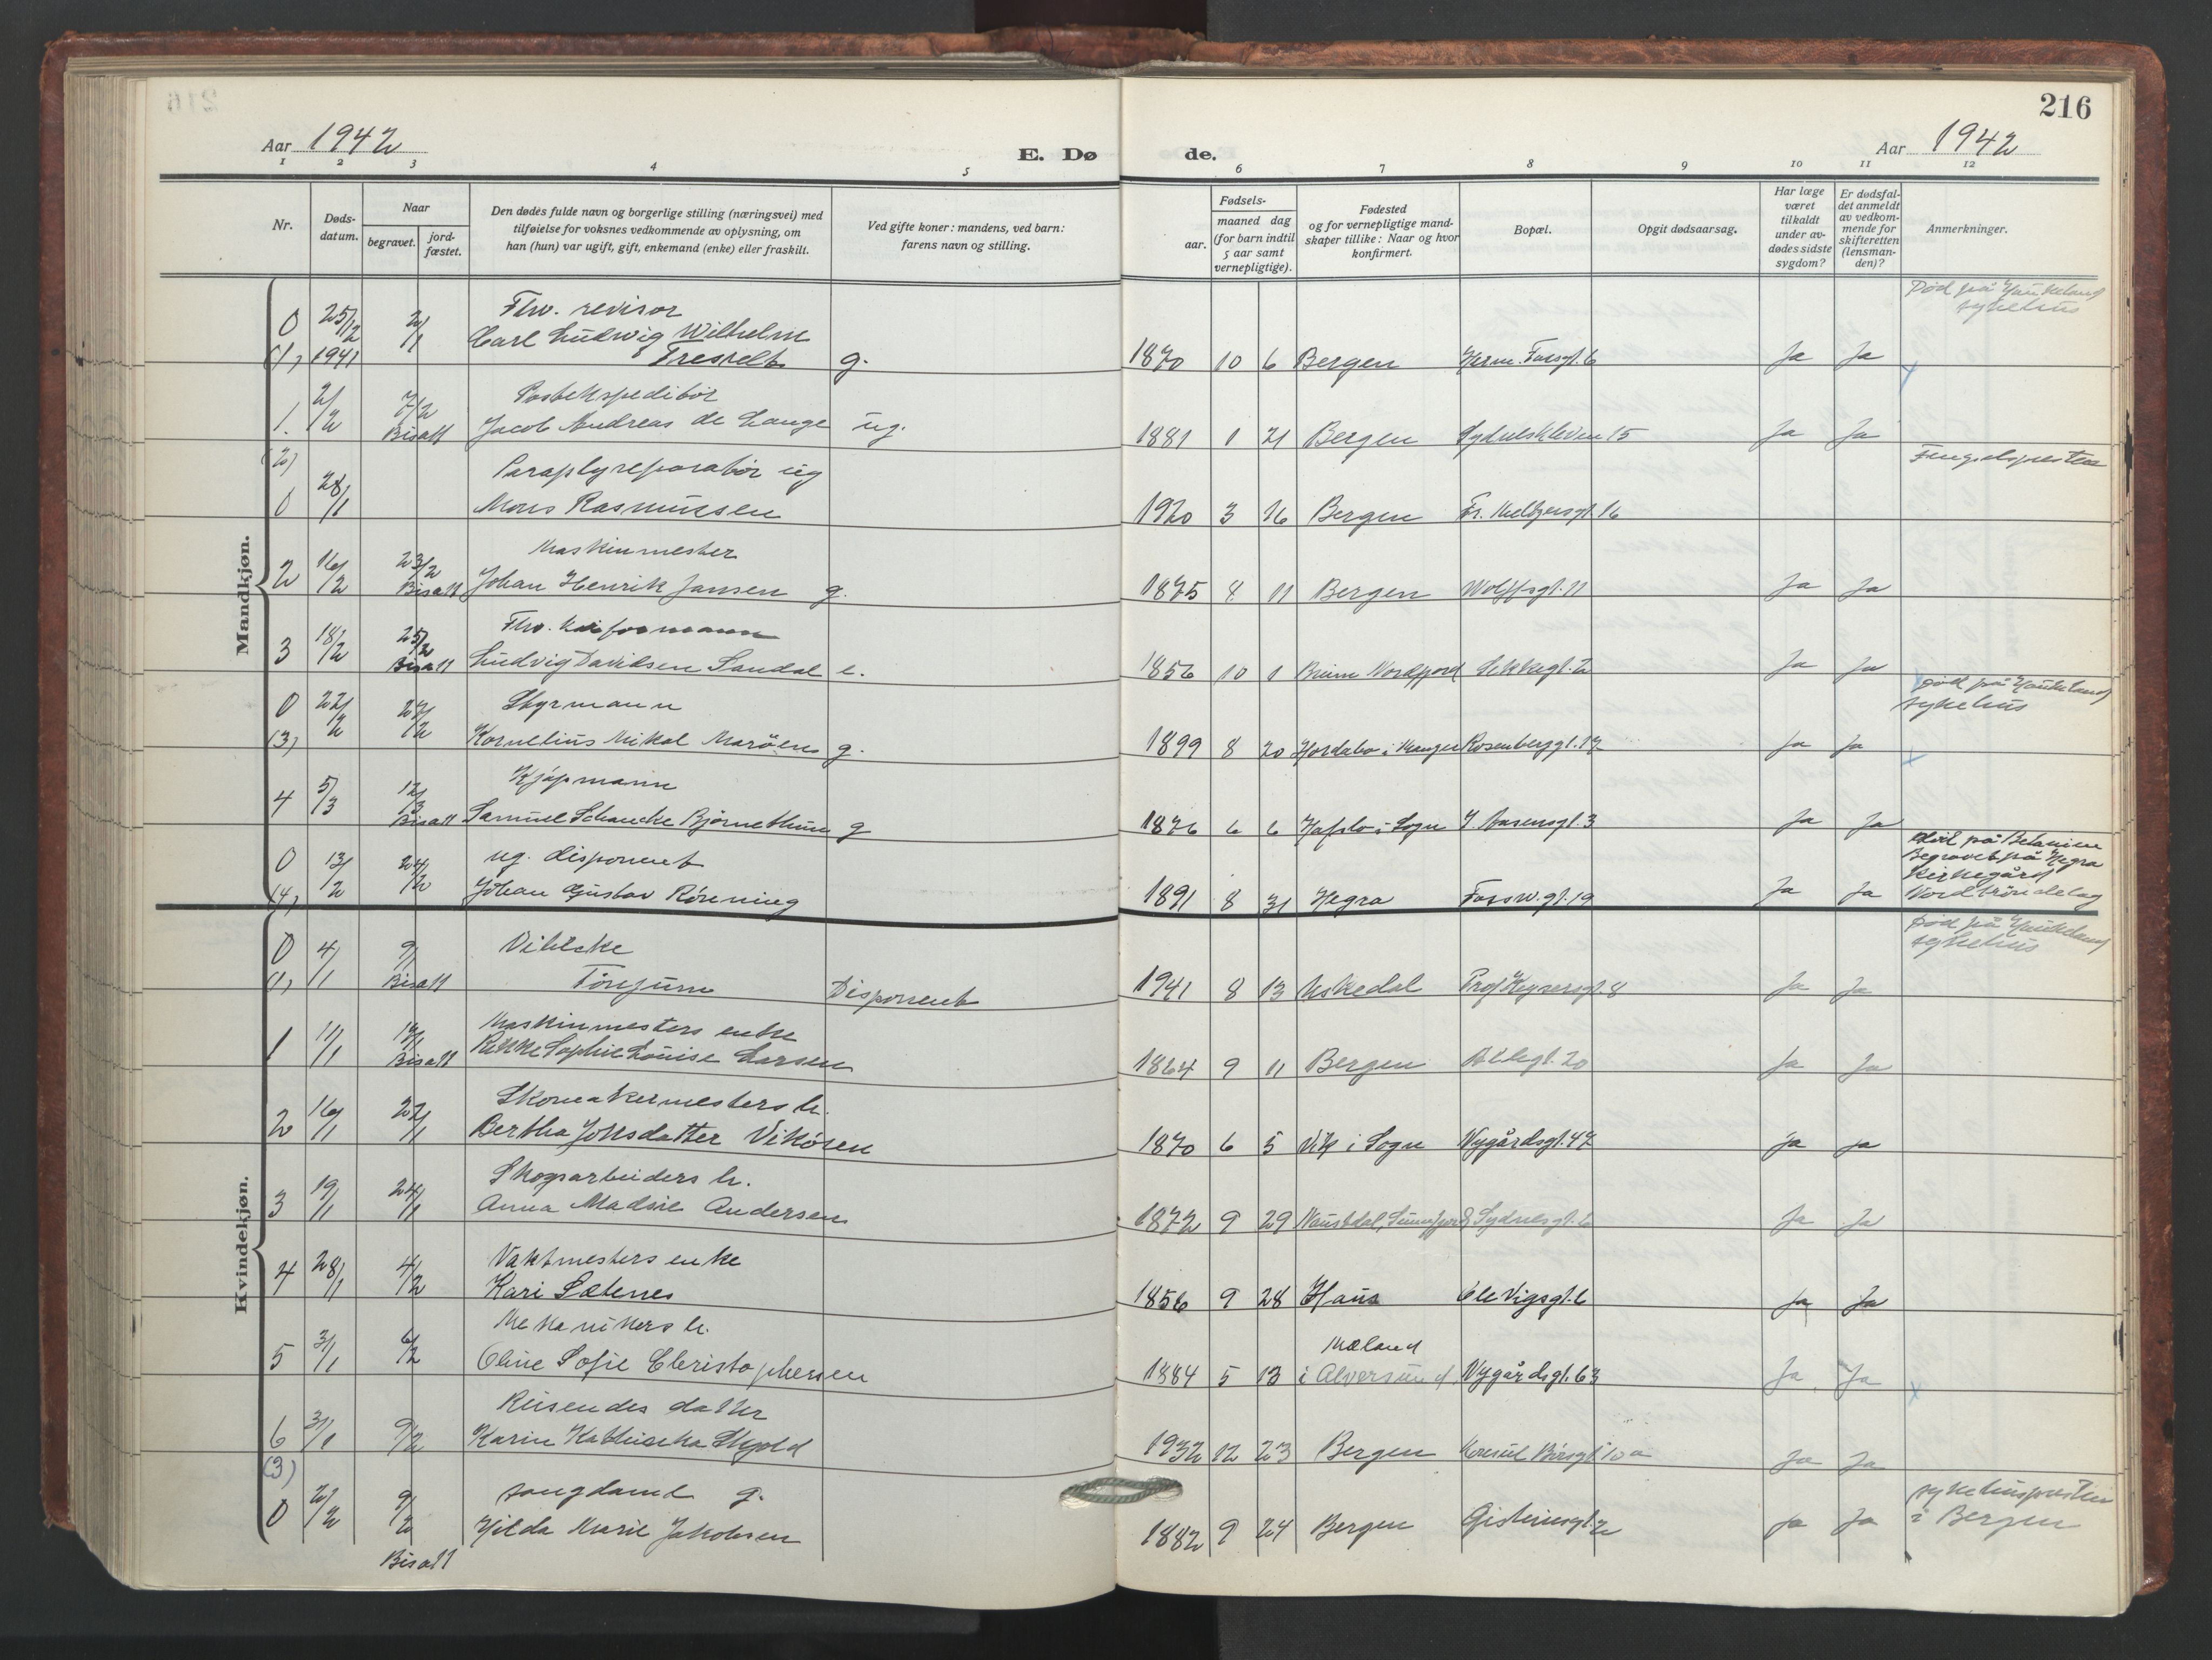 216
Aar 1942
E. Dø
de.
Aar 1942
1 2 3 4 5
6 7 8 9 10 11 12
Nr.
Døds-
datum.
Naar
begravet.
jord-
fæstet.
Den dødes fulde navn og borgerlige stilling (næringsvei) med
tilføielse for voksnes vedkommende av oplysning, om
han (hun) var ugift, gift, enkemand (enke) eller fraskilt.
Ved gifte koner: mandens, ved barn:
farens navn og stilling.
Fødsels-
aar.
maaned dag
(for barn indtil
5 aar samt
vernepligtige).
Fødested
og for vernepligtige mand-
skaper tillike: Naar og hvor
konfirmert.
Bopæl.
Opgit dødsaarsag.
Har læge
været
tilkaldt
under av-
dødes sidste
sygdom?
Er dødsfal-
det anmeldt
av vedkom-
mende for
skifteretten
(lensman-
den)?
Anmerkninger.
Mandkjøn.
Død på Haukeland
sykehus
0 25/12 2/1 Fhv. revisor
Carl Ludwig Wilhelm
(1) 1941 Tresselt g. 1870 10 6 Bergen Herm. Fossgt. 6 Ja Ja
2/2 7/2 Postekspeditör
1. Bisatt Jacob Andreas de Lange ug. 1881 1 21 Bergen Sydneskleven 15 Ja Ja
(2) 28/1 Paraplyreparatör ug Fengselspresten
0 Mons Rasmussen 1920 3 16 Bergen Fr. Meltzersgt. 16
16/2 23/2 Maskinmester
2 Bisatt Johan Henrik Jansen g. 1875 8 11 Bergen Wolffsgt. 11 Ja Ja
18/2 25/2 Fhv.
3 Bisatt Ludvig Davidsen Sandal e. 1856 10 1 Breim Nordfjord Sekkegt. 2 Ja Ja
død på Haukeland
sykehus
0 22/2 27/2 Styrmann
(3) Kornelius Mikal Maröen g. 1899 8 20 Hordabø i Manger Rosenberggt. 17 Ja Ja
5/3 12/3 Kjøpmann
4 Bisatt Samuel Schancke Bjørnethun g 1876 6 6 Hafslo i Sogn I. Aasensgt. 3 Ja Ja
død på Betanien
Begravet på Hegra
Kirkegård
Nordtröndelag
0 13/2 24/2 ug. disponent
(4) Johan Gustav Rönning 1891 8 31 Hegra Fossw.gt. 19 Ja Ja
Kvindekjøn.
Død på Haukeland
sykehus
0 4/1 9/1 Vibecke
(1) Bisatt Tönjum Disponent 1941 8 13 Uskedal Prof Keysersgt. 8 Ja Ja
11/1 Maskinmesters enke
1 Bisatt Rikke Sophie Louise Larsen 1864 9 11 Bergen Allegt. 20 Ja Ja
16/1 22/1 Skomakermesters h.
2 Bertha Johsdatter Vikören 1870 6 5 Vik i Sogn Nygårdsgt. 47 Ja Ja
19/1 24/1 Skogsarbeiders h.
3 Anna Madsie Andersen 1872 9 29 Naustdal, Sunnfjord Sydnesgt. 6 Ja Ja
28/1 4/2 Vaktmesters enke
4 Kari Sætenes 1856 9 28 Haus Ole Vigsgt. 6 Ja Ja
31/1 6/2 Mekanikers h. Mæland
5 Oline Sofie Christophersen 1884 5 13 i Alversund Nygårdsgt. 63 Ja Ja
31/1 9/2 Reisendes datter
6 Karin Kathinka Skjold 1932 12 23 Bergen Konsul Börsgt. 10 a Ja Ja
(3)
2/2 9/2 sangdame g. sykehuspresten
0 Hilda Marie Jakobsen 1882 9 24 Bergen Gistenesgt. 2 Ja Ja i Bergen
Bisatt